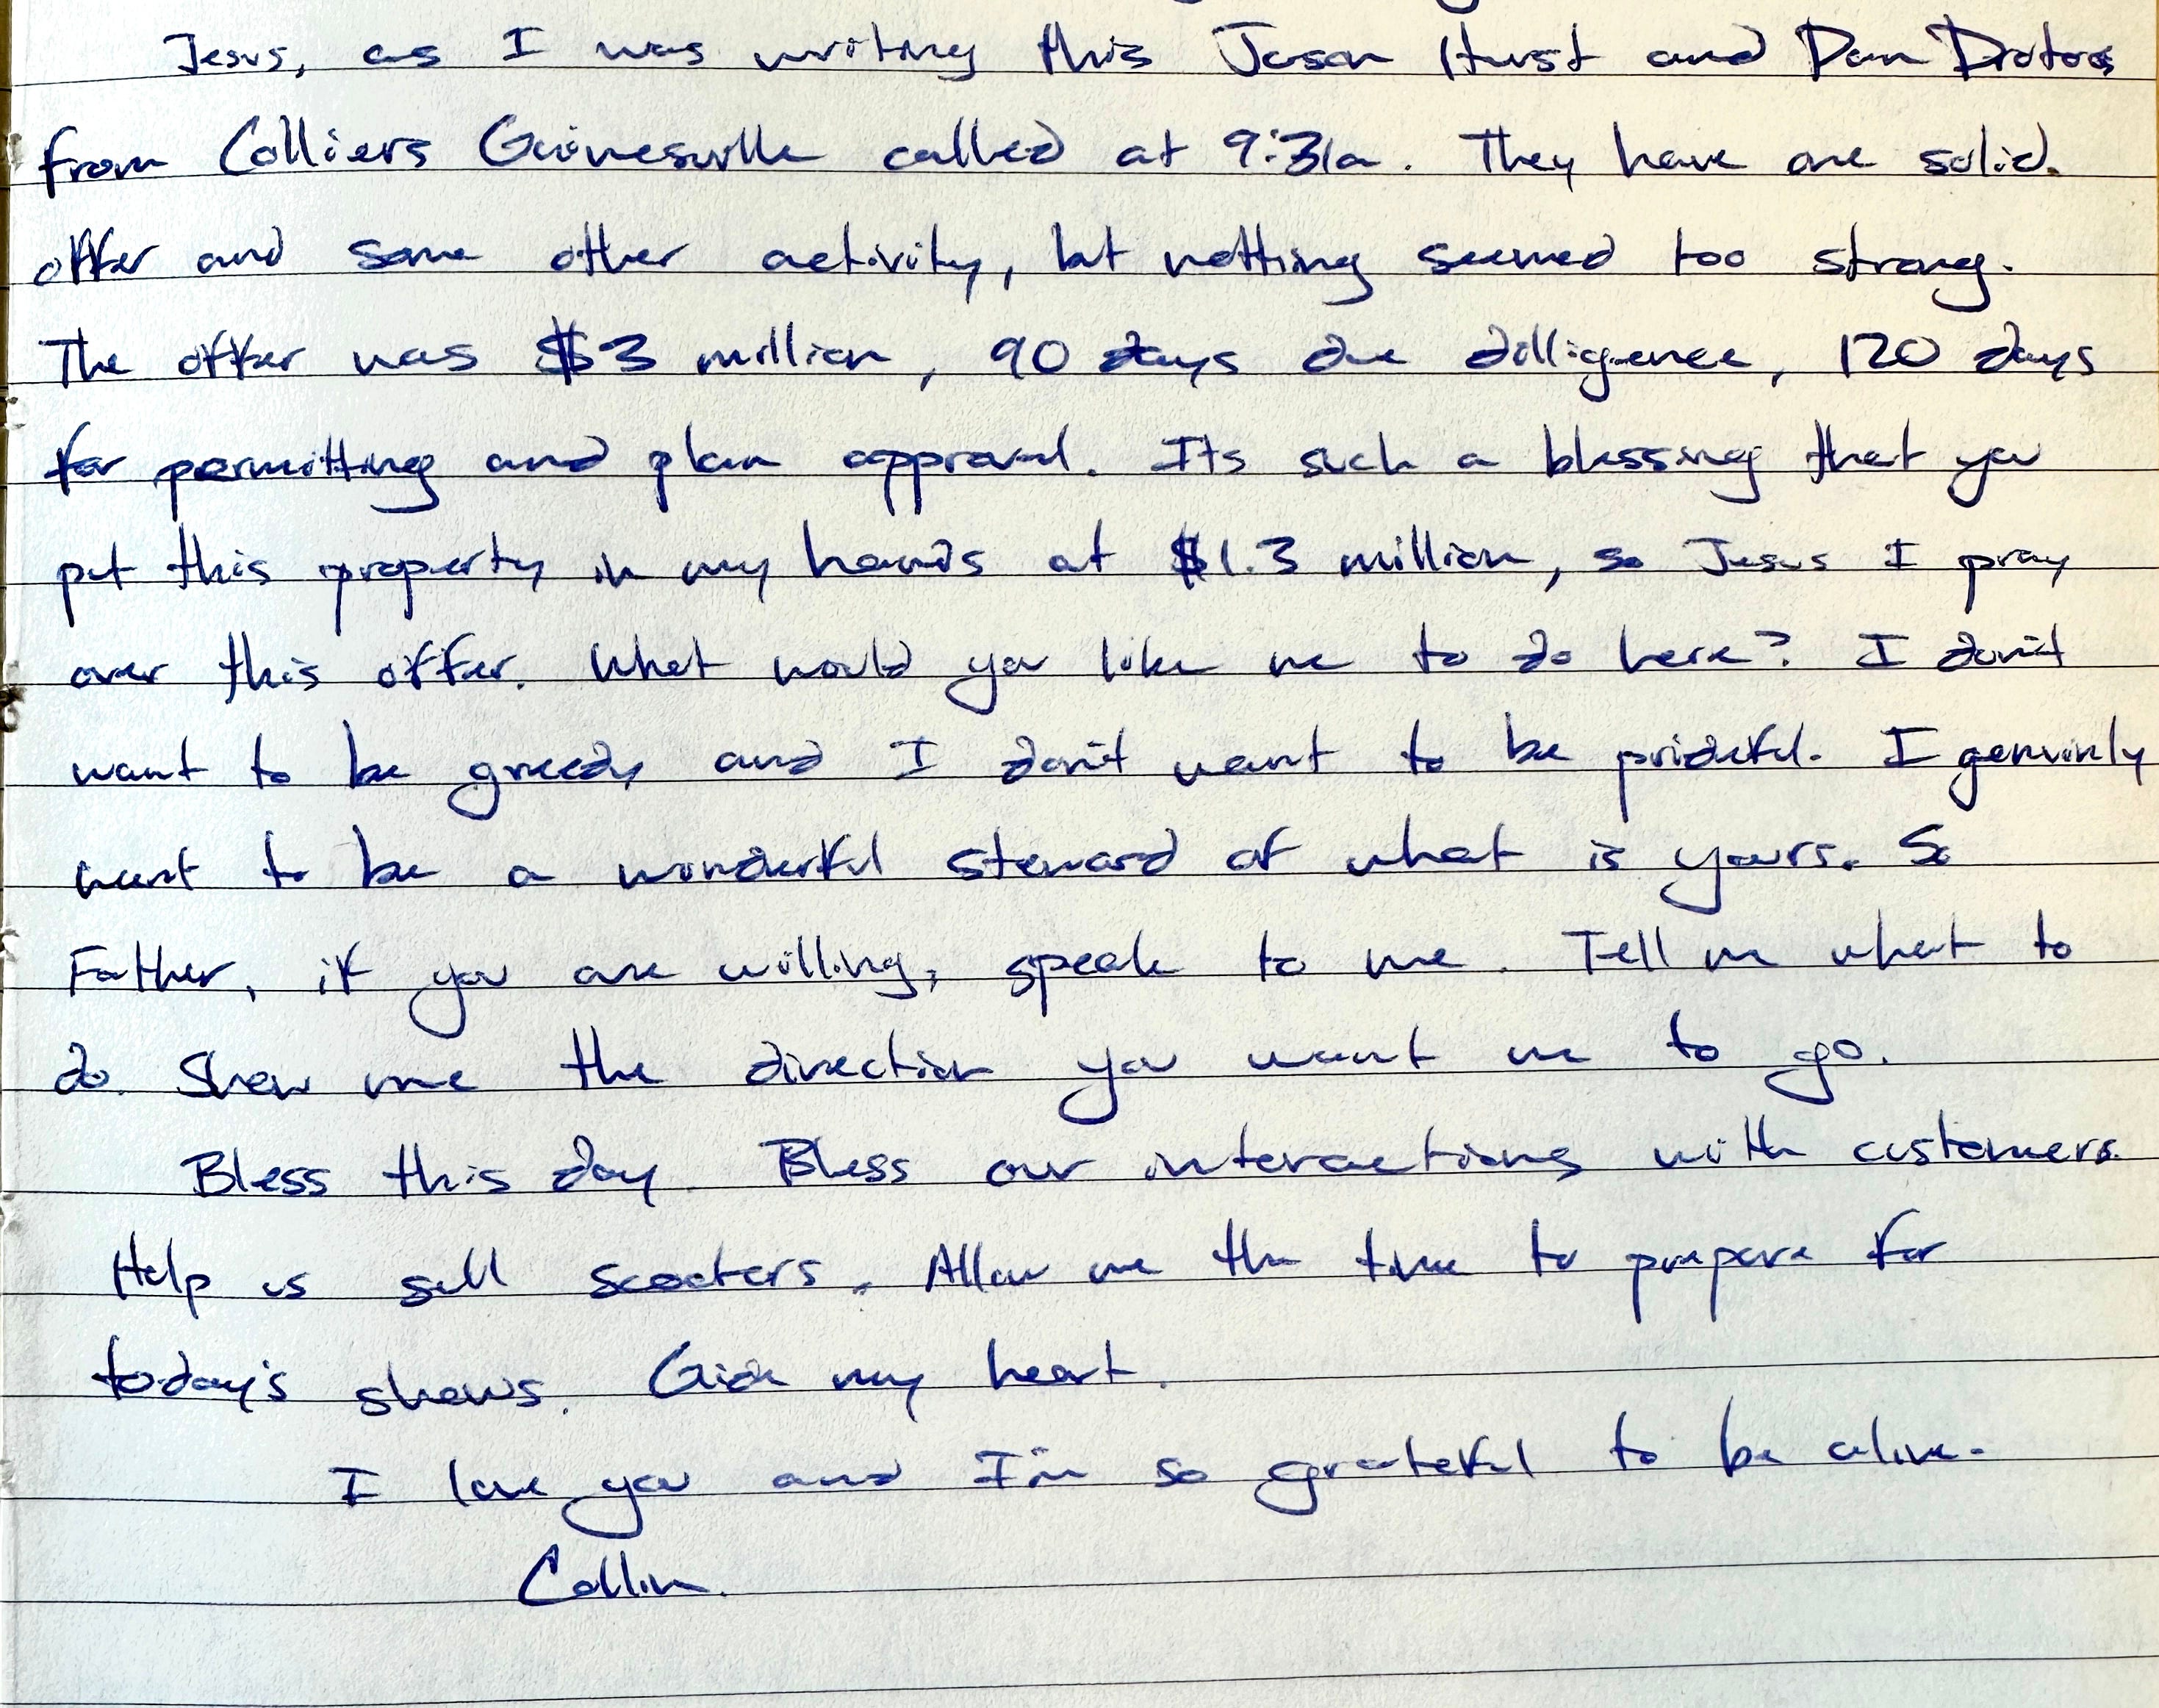 Jesus, as I was writing this Jason Hurst and Dan Drotos
from Colliers Gainesville called at 9:31a. They have one solid
offer and some other activity, but nothing seemed too strong.
The offer was $3 million, 90 days due dilligence, 120 days
for permitting and plan approval. Its such a blessing that you
put this property in my hands at $1.3 million, so Jesus I pray
over this offer. What would you like me to do here? I don't
want to be greedy and I don't want to be prideful. I genuinly
want to be a wonderful steward of what is yours. So
Father, if you are willing, speak to me. Tell me what to
do. Show me the direction you want me to go.
Bless this day. Bless our interactions with customers.
Help us sell scooters. Allow me the time to prepare for
today's shows. Guide my heart.
I love you and I'm so grateful to be alive.
Collin.